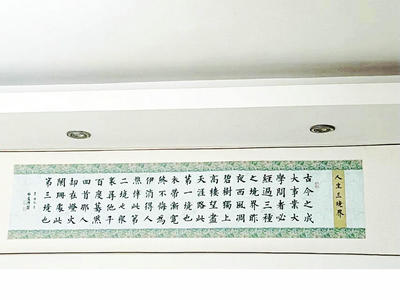 人生三境界
古今之成
大事業大
學問者必
經過三種
之境界昨
夜西風凋
碧樹獨上
高樓望盡
天涯路此
第一境也
衣帶漸寬
終不悔為
伊消得人
憔悴此第
二境也眾
裏尋他千
百度驀然
回首那人
却在燈火
闌珊處此
第三境也